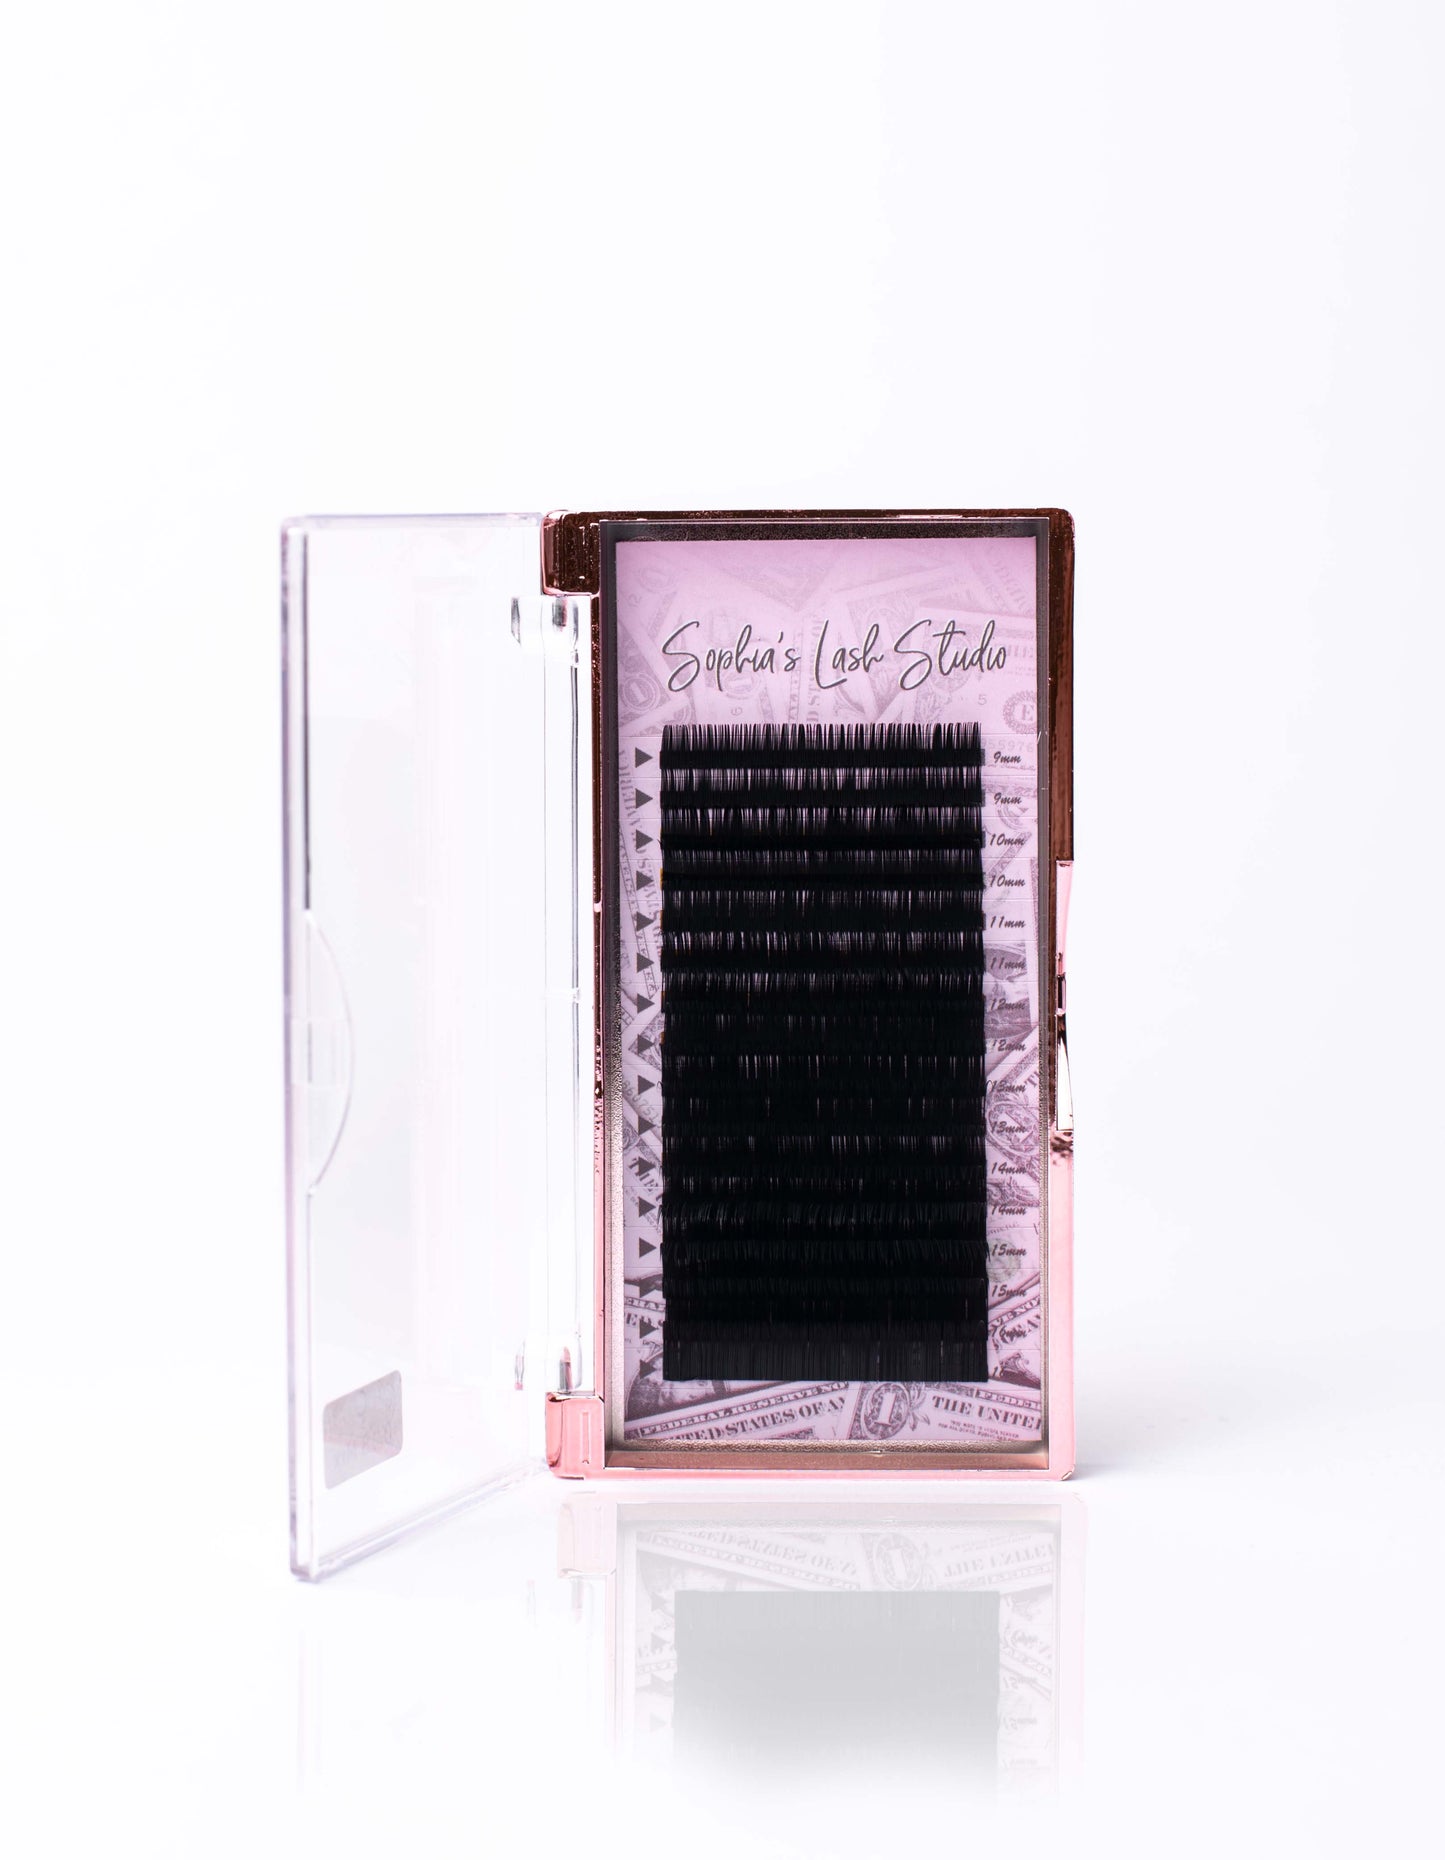 Sophia's Lash Studio
9mm
9mm
10mm
10mm
11mm
11mm
12mm
12mm
13mm
13mm
14mm
14mm
15mm
15mm
FEDERAL RESERVE NO
UNITED STATES OF A
THE UNITE